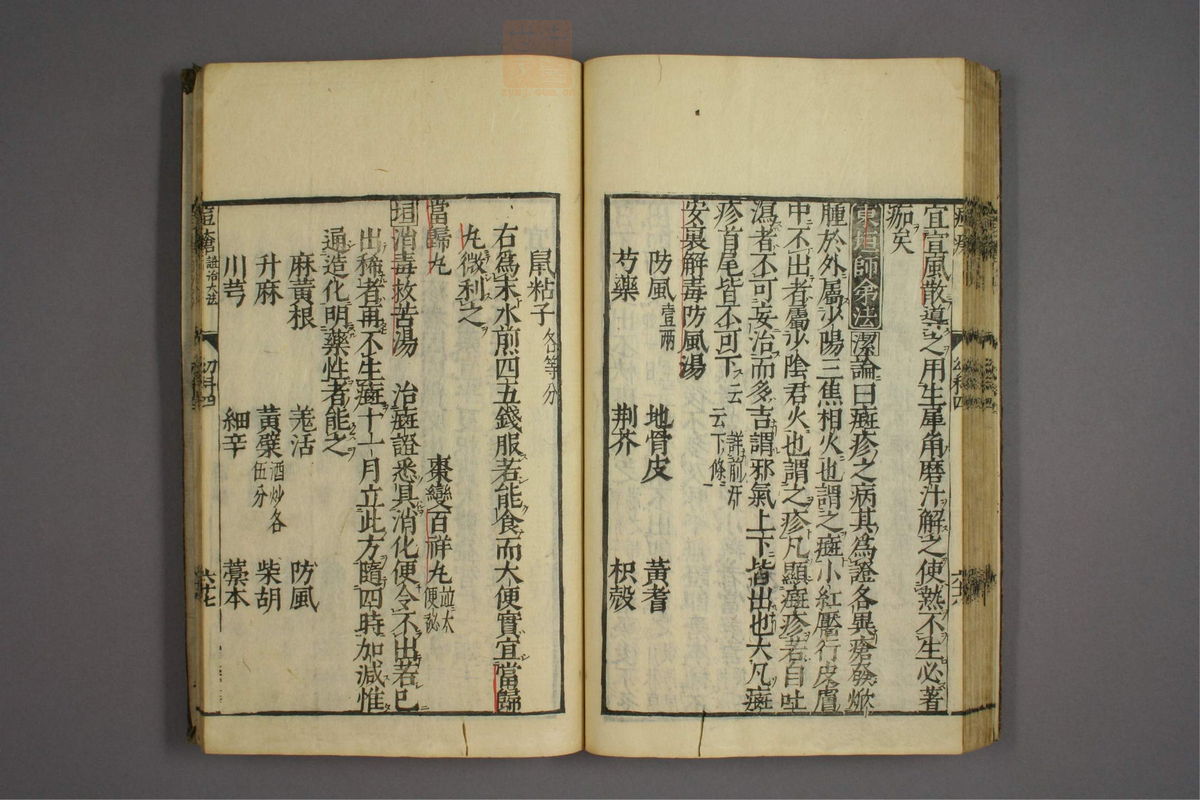 宜宣風散導之用生犀角磨汁解之使熱不生必著
痂矣
東垣師弟法 潔論曰癍疹之病其為證各異瘡發焮
腫於外屬少陽三焦相火也謂之癍小紅靨行皮膚
中不出者屬少陰君火也謂之疹凡顯癍疹若自吐
瀉者不可妄治而多吉謂邪氣上下皆出也大凡癍
疹首尾皆不可下云云下條詳前
安裏解毒防風湯
防風壹兩 地骨皮 黃耆
芍藥 荆芥 枳殼
鼠粘子各等分
右為末水煎四五錢服若能食而大便實宜當歸
丸微利之
當歸丸 棗變百祥丸並大便秘
垣消毒救苦湯 治癍證悉具消化便令不出若已
出稀者再不生癍十一月立此方隨四時加減惟
通造化明藥性者能之
麻黃根 羌活 防風
升麻 黃檗酒炒各伍分 柴胡
川芎 細辛 藁本
痘瘡證治大法 幼科四 六七